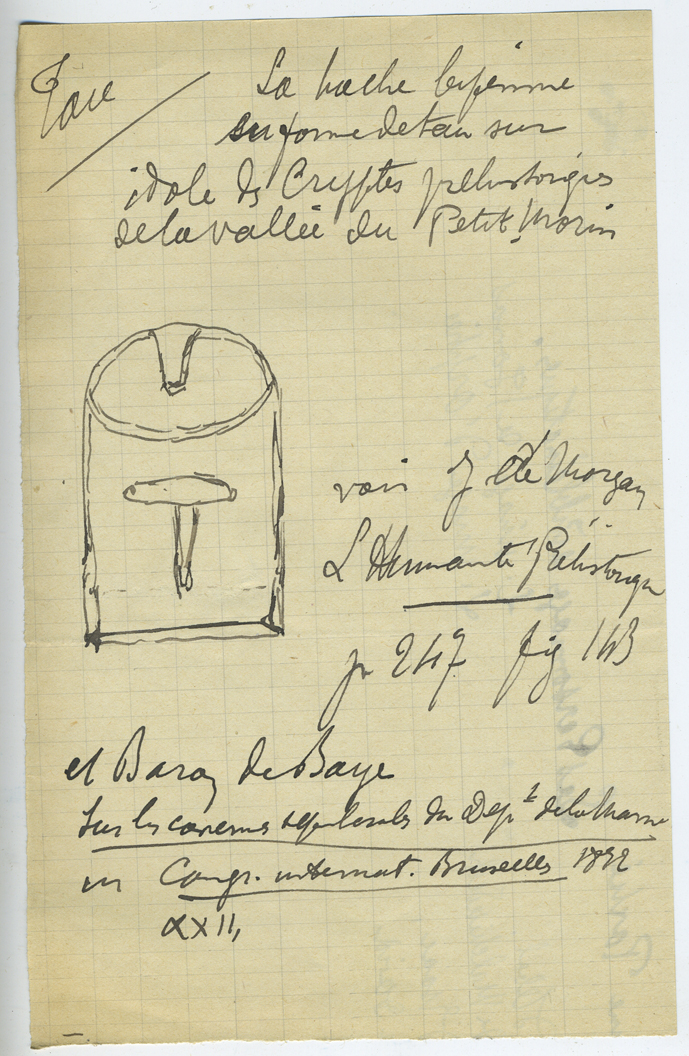 La hache bipenne
en forme de tau sur
idole ds Cryptes préhistoriques
de la vallée du Petit Morin
voir J de Morgan
L'Humanité Préhistorique
p 247 fig 143
et Baron de Baye
Sur les cavernes sépulcrales du Dept de la Marne
in Congr. internat. Bruxelles 1872
XXII,